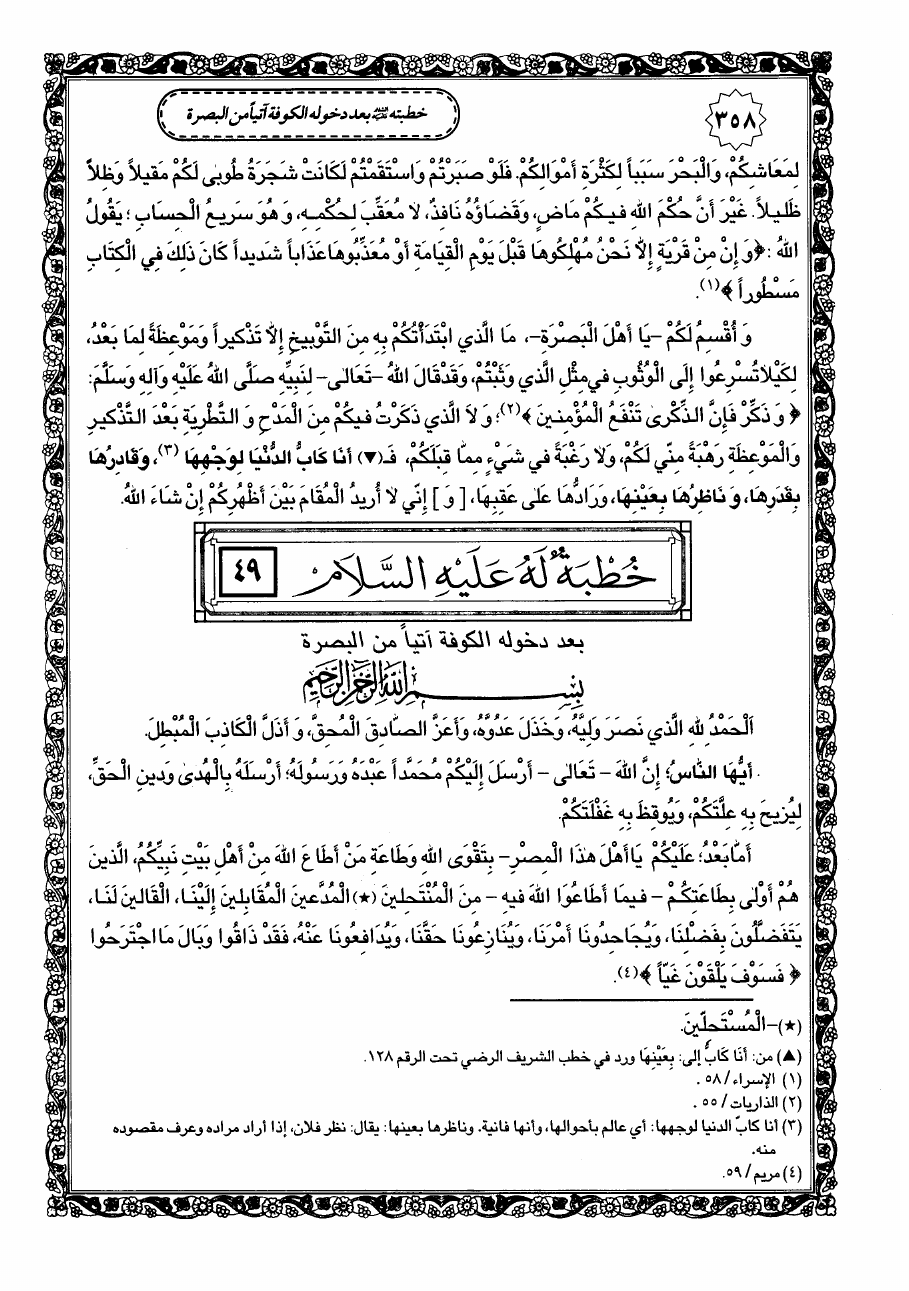 ٣٥٨
خطبته عليه السلام بعد دخوله الكوفة آتياً من البصرة
لِمَعَاشِكُمْ، وَالْبَحْرَ سَبَباً لِكَثْرَةِ أَمْوَالِكُمْ. فَلَوْ صَبَرْتُمْ وَاسْتَقَمْتُمْ لَكَانَتْ شَجَرَةُ طُوبى لَكُمْ مَقيلاً وَظِلاًّ
ظَليلاً. غَيْرَ أَنَّ حُكْمَ اللهِ فيكُمْ مَاضٍ، وَقَضَاؤُهُ نَافِذٌ، لاَ مُعَقِّبَ لِحُكْمِهِ، وَهُوَ سَريعُ الْحِسَابِ؛ يَقُولُ
اللهُ: ﴿وَ إِنْ مِنْ قَرْيَةٍ إِلاَّ نَحْنُ مُهْلِكُوهَا قَبْلَ يَوْمِ الْقِيَامَةِ أَوْ مُعَذِّبُوهَا عَذَاباً شَديداً كَانَ ذلِكَ فِي الْكِتَابِ
مَسْطُوراً﴾(١).
وَ أُقْسِمُ لَكُمْ -يَا أَهْلَ الْبَصْرَةِ-، مَا الَّذِي ابْتَدَأْتُكُمْ بِهِ مِنَ التَّوْبيخِ إِلاَّ تَذْكيراً وَمَوْعِظَةً لِمَا بَعْدُ،
لِكَيْلاَ تُسْرِعُوا إِلَى الْوُثُوبِ في مِثْلِ الَّذي وَثَبْتُمْ، وَقَدْ قَالَ اللهُ -تَعَالى- لِنَبِيِّهِ صَلَّى اللهُ عَلَيْهِ وَآلِهِ وَسَلَّمَ:
﴿وَ ذَكِّرْ فَإِنَّ الذِّكْرىٰ تَنْفَعُ الْمُؤْمِنينَ﴾(٢)؛ وَ لاَ الَّذي ذَكَرْتُ فيكُمْ مِنَ الْمَدْحِ وَ التَّطْرِيَةِ بَعْدَ التَّذْكيرِ
وَالْمَوْعِظَةِ رَهْبَةً مِنّي لَكُمْ، وَلاَ رَغْبَةً في شَيْءٍ مِمَّا قِبَلَكُمْ، فَـ(▼) أَنَا كَابُّ الدُّنْيَا لِوَجْهِهَا (٣)، وَقَادِرُهَا
بِقَدَرِهَا، وَ نَاظِرُهَا بِعَيْنِهَا، وَرَادُّهَا عَلى عَقِبِهَا، [وَ] إِنّي لاَ أُريدُ الْمُقَامَ بَيْنَ أَظْهُرِكُمْ إِنْ شَاءَ اللهُ.
خُطْبَةٌ لَهُ عَلَيْهِ السَّلَامْ ٤٩
بعد دخوله الكوفة آتياً من البصرة
بِسْمِ اللهِ الرَّحْمٰنِ الرَّحِيمِ
اَلْحَمْدُ لِلهِ الَّذي نَصَرَ وَلِيَّهُ، وَخَذَلَ عَدُوَّهُ، وَأَعَزَّ الصَّادِقَ الْمُحِقَّ، وَ أَذَلَّ الْكَاذِبَ الْمُبْطِلَ.
أَيُّهَا النَّاسُ؛ إِنَّ اللهَ - تَعَالى - أَرْسَلَ إِلَيْكُمْ مُحَمَّداً عَبْدَهُ وَرَسُولَهُ؛ أَرْسَلَهُ بِالْهُدى وَدينِ الْحَقِّ،
لِيُزيحَ بِهِ عِلَّتَكُمْ، وَيُوقِظَ بِهِ غَفْلَتَكُمْ.
أَمَّا بَعْدُ؛ عَلَيْكُمْ يَا أَهْلَ هذَا الْمِصْرِ- بِتَقْوَى اللهِ وَطَاعَةِ مَنْ أَطَاعَ اللهَ مِنْ أَهْلِ بَيْتِ نَبِيِّكُمُ، الَّذينَ
هُمْ أَوْلى بِطَاعَتِكُمْ - فيمَا أَطَاعُوا اللهَ فيهِ - مِنَ الْمُنْتَحِلينَ (★) الْمُدَّعينَ الْمُقَابِلينَ إِلَيْنَا، الْقَالينَ لَنَا،
يَتَفَضَّلُونَ بِفَضْلِنَا، وَيُجَاحِدُونَا أَمْرَنَا، وَيُنَازِعُونَا حَقَّنَا، وَيُدَافِعُونَا عَنْهُ، فَقَدْ ذَاقُوا وَبَالَ مَا اجْتَرَحُوا
﴿فَسَوْفَ يَلْقَوْنَ غَيّاً﴾(٤).
(★)-الْمُسْتَحِلّينَ.
(▲) من: أَنَا كَابُّ إلى: بِعَيْنِهَا ورد في خطب الشريف الرضي تحت الرقم ١٢٨.
(١) الإسراء/ ٥٨ .
(٢) الذاريات/ ٥٥ .
(٣) أنا كابّ الدنيا لوجهها: أي عالم بأحوالها، وأنها فانية. وناظرها بعينها: يقال: نظر فلان، إذا أراد مراده وعرف مقصوده
منه.
(٤) مريم/ ٥٩.